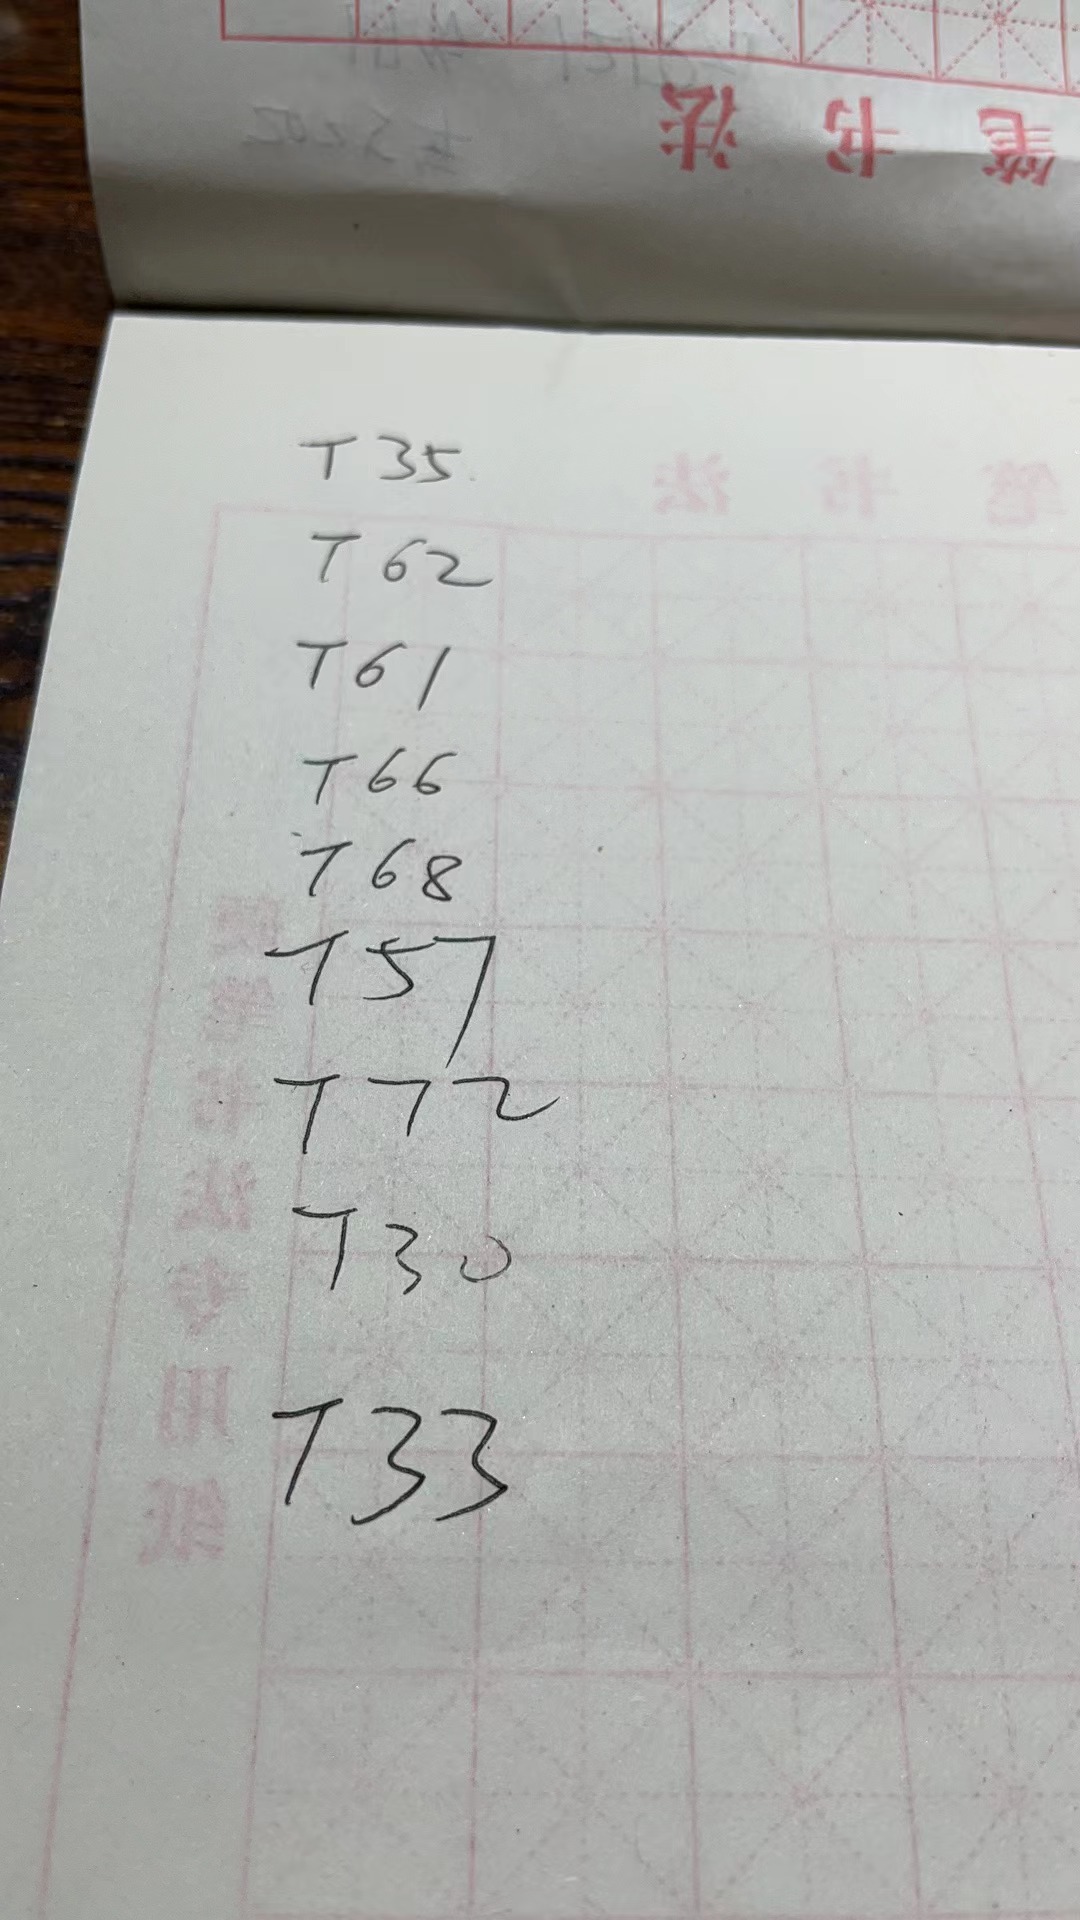 笔书法
T35
T62
T61
T66
T68
T57
T72
T30
T33
硬笔书法专用纸